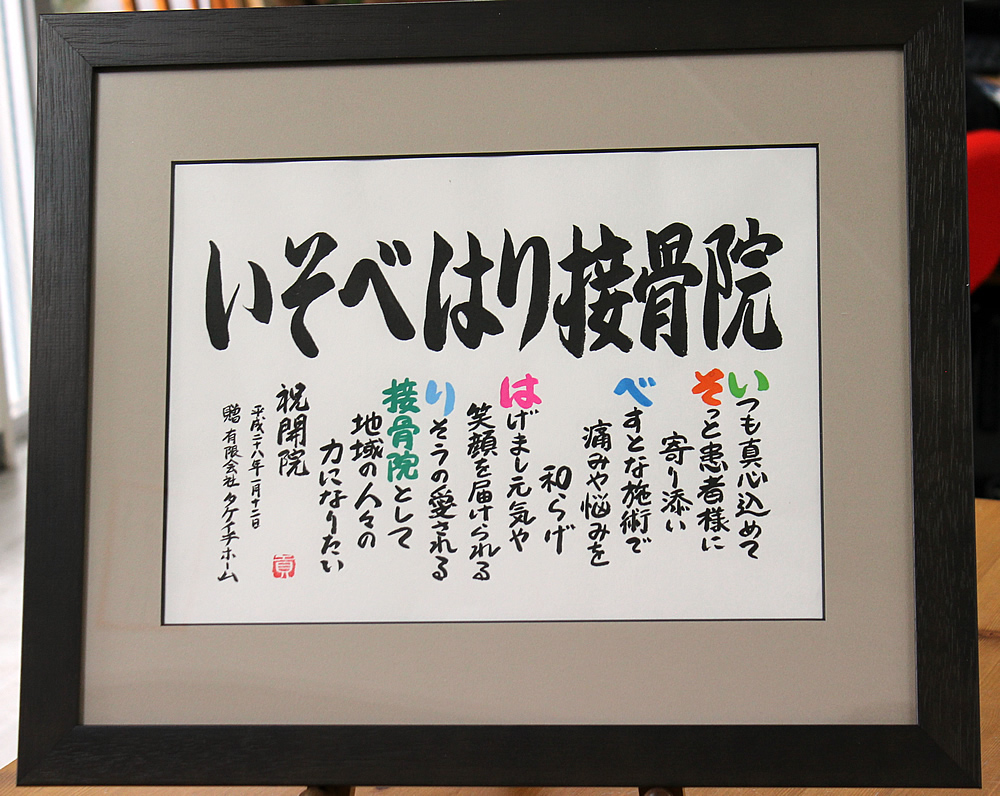 いそべはり接骨院
いつも真心込めて
そっと患者様に
寄り添い
べすとな施術で
痛みや悩みを
和らげ
はげまし元気や
笑顔を届けられる
りそうの愛される
接骨院として
地域の人々の
力になりたい
祝開院
平成二十八年一月十二日
贈 有限会社 タケチホーム
貞